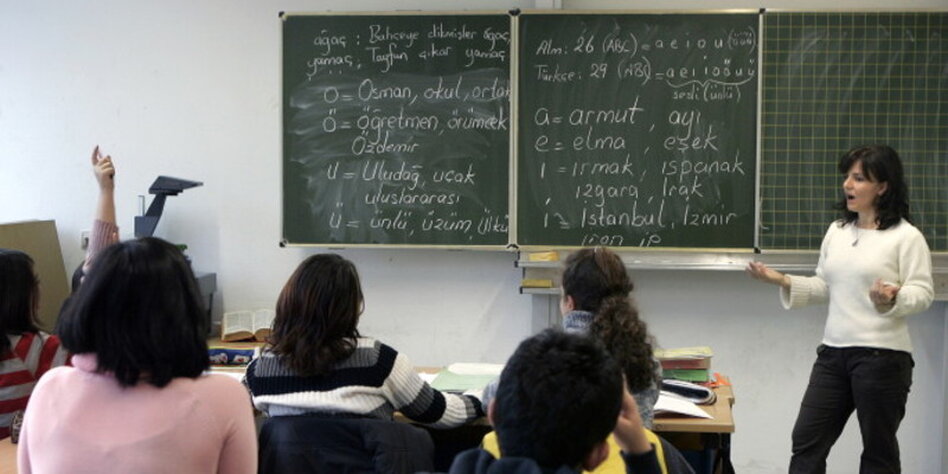 ağaç : Bahçeye dikmişler ağaç,
yamaç; Tayfun çıkar yamaç
O = Osman, okul, orta
Ö = Öğretmen, örümcek
Özdemir
U = Uludağ, uçak
uluslararası
Ü = ünlü, üzüm, Ülkü
Alm: 26 (ABC) = a e i o u (üö)
Türkçe: 29 (ABC) = a e ı i o ö u ü
sesli (ünlü)
a = armut, ayı
e = elma, eşek
ı = ırmak, ıspanak
ızgara, Irak
i = İstanbul, İzmir
ip